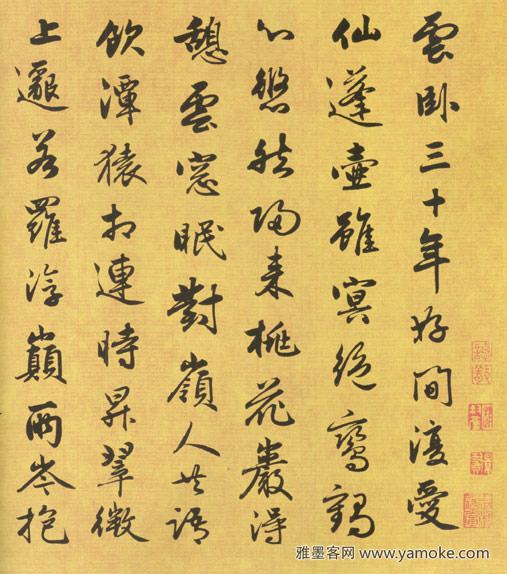 雲臥三十年好間復愛
仙蓬壺雖冥絶鸞鶴
心悠然歸來桃花巖得
憩雲窓眠對嶺人共語
飲潭猿相連時昇翠微
上邈若羅浮巔兩岑抱
雅墨客网 www.yamoke.com